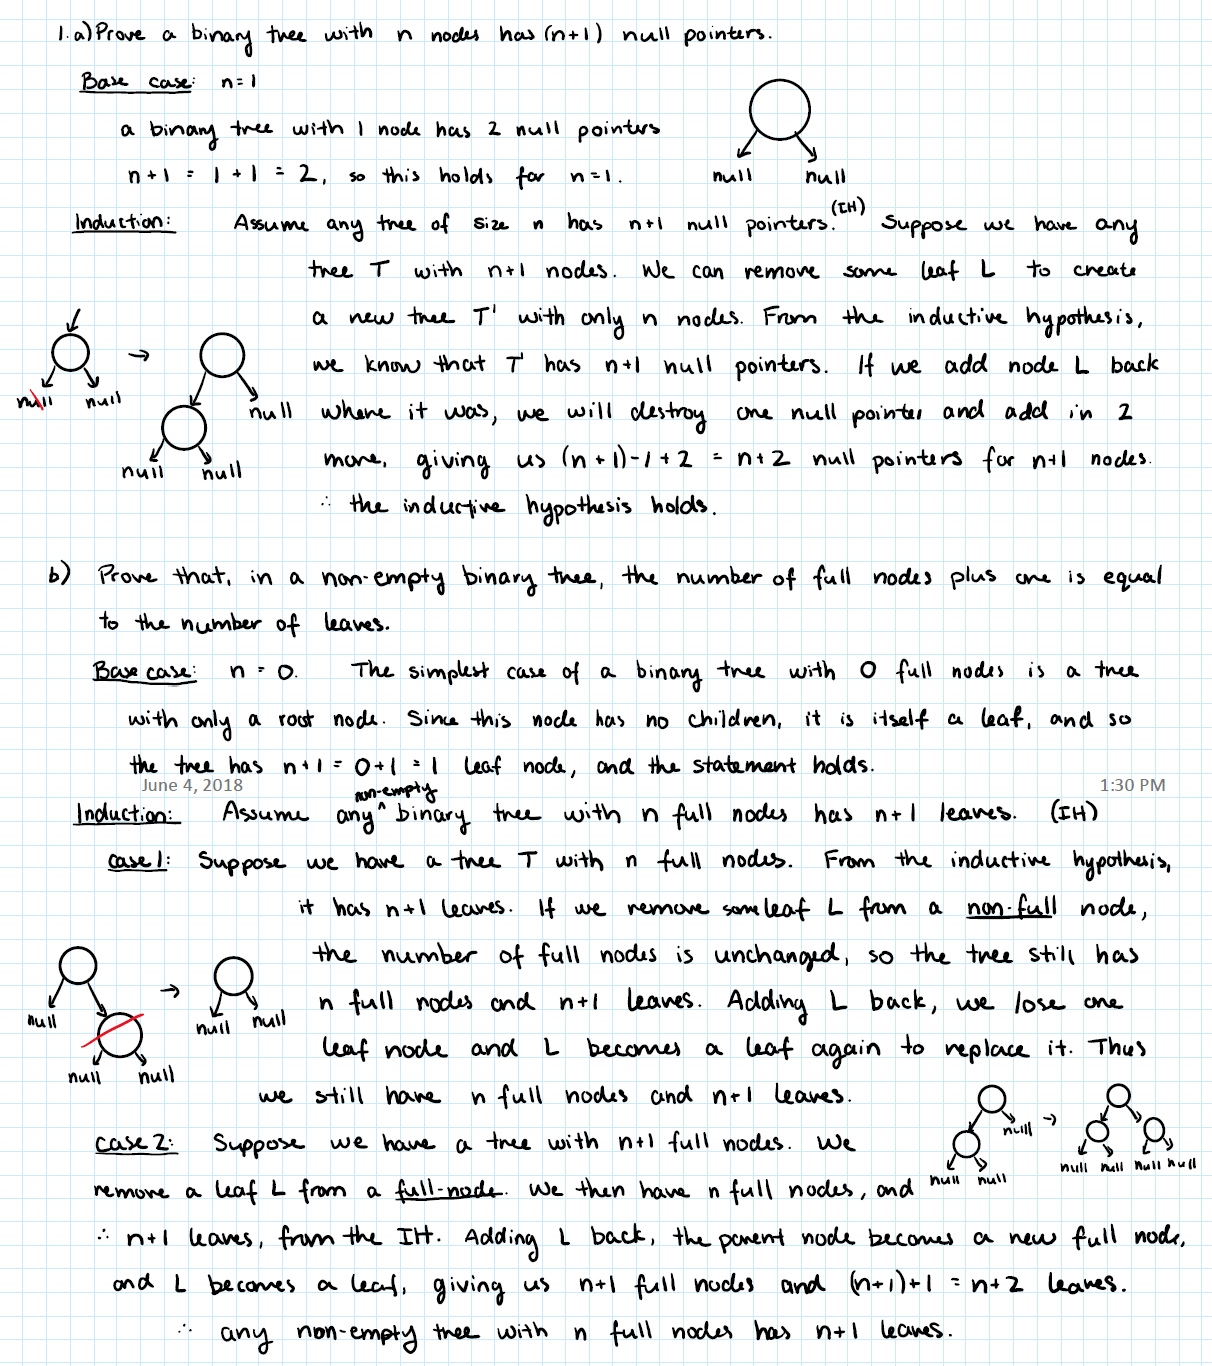 1. a) Prove a binary tree with n nodes has (n+1) null pointers.
Base case: n=1
a binary tree with 1 node has 2 null pointers
n+1 = 1+1 = 2, so this holds for n=1.
null null
Induction: Assume any tree of size n has n+1 null pointers. (IH) Suppose we have any
tree T with n+1 nodes. We can remove some leaf L to create
a new tree T' with only n nodes. From the inductive hypothesis,
we know that T' has n+1 null pointers. If we add node L back
null null → null where it was, we will destroy one null pointer and add in 2
null null more, giving us (n+1)-1+2 = n+2 null pointers for n+1 nodes.
∴ the inductive hypothesis holds.
b) Prove that, in a non-empty binary tree, the number of full nodes plus one is equal
to the number of leaves.
Base case: n = 0. The simplest case of a binary tree with 0 full nodes is a tree
with only a root node. Since this node has no children, it is itself a leaf, and so
the tree has n+1 = 0+1 = 1 leaf node, and the statement holds.
June 4, 2018 1:30 PM
Induction: Assume any ^non-empty binary tree with n full nodes has n+1 leaves. (IH)
case 1: Suppose we have a tree T with n full nodes. From the inductive hypothesis,
it has n+1 leaves. If we remove some leaf L from a non-full node,
the number of full nodes is unchanged, so the tree still has
null → null null n full nodes and n+1 leaves. Adding L back, we lose one
null null leaf node and L becomes a leaf again to replace it. Thus
we still have n full nodes and n+1 leaves.
case 2: Suppose we have a tree with n+1 full nodes. We
null →
null null null null null null
remove a leaf L from a full-node. We then have n full nodes, and
∴ n+1 leaves, from the IH. Adding L back, the parent node becomes a new full node,
and L becomes a leaf, giving us n+1 full nodes and (n+1)+1 = n+2 leaves.
∴ any non-empty tree with n full nodes has n+1 leaves.